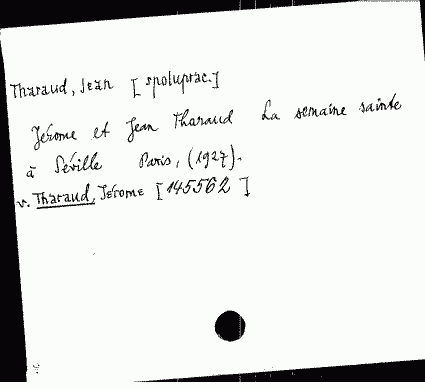 Tharaud, Jean [spoluprac.]
Jérome et Jean Tharaud La semaine sainte
à Séville Paris, (1927).
v. Tharaud, Jérome [145562]